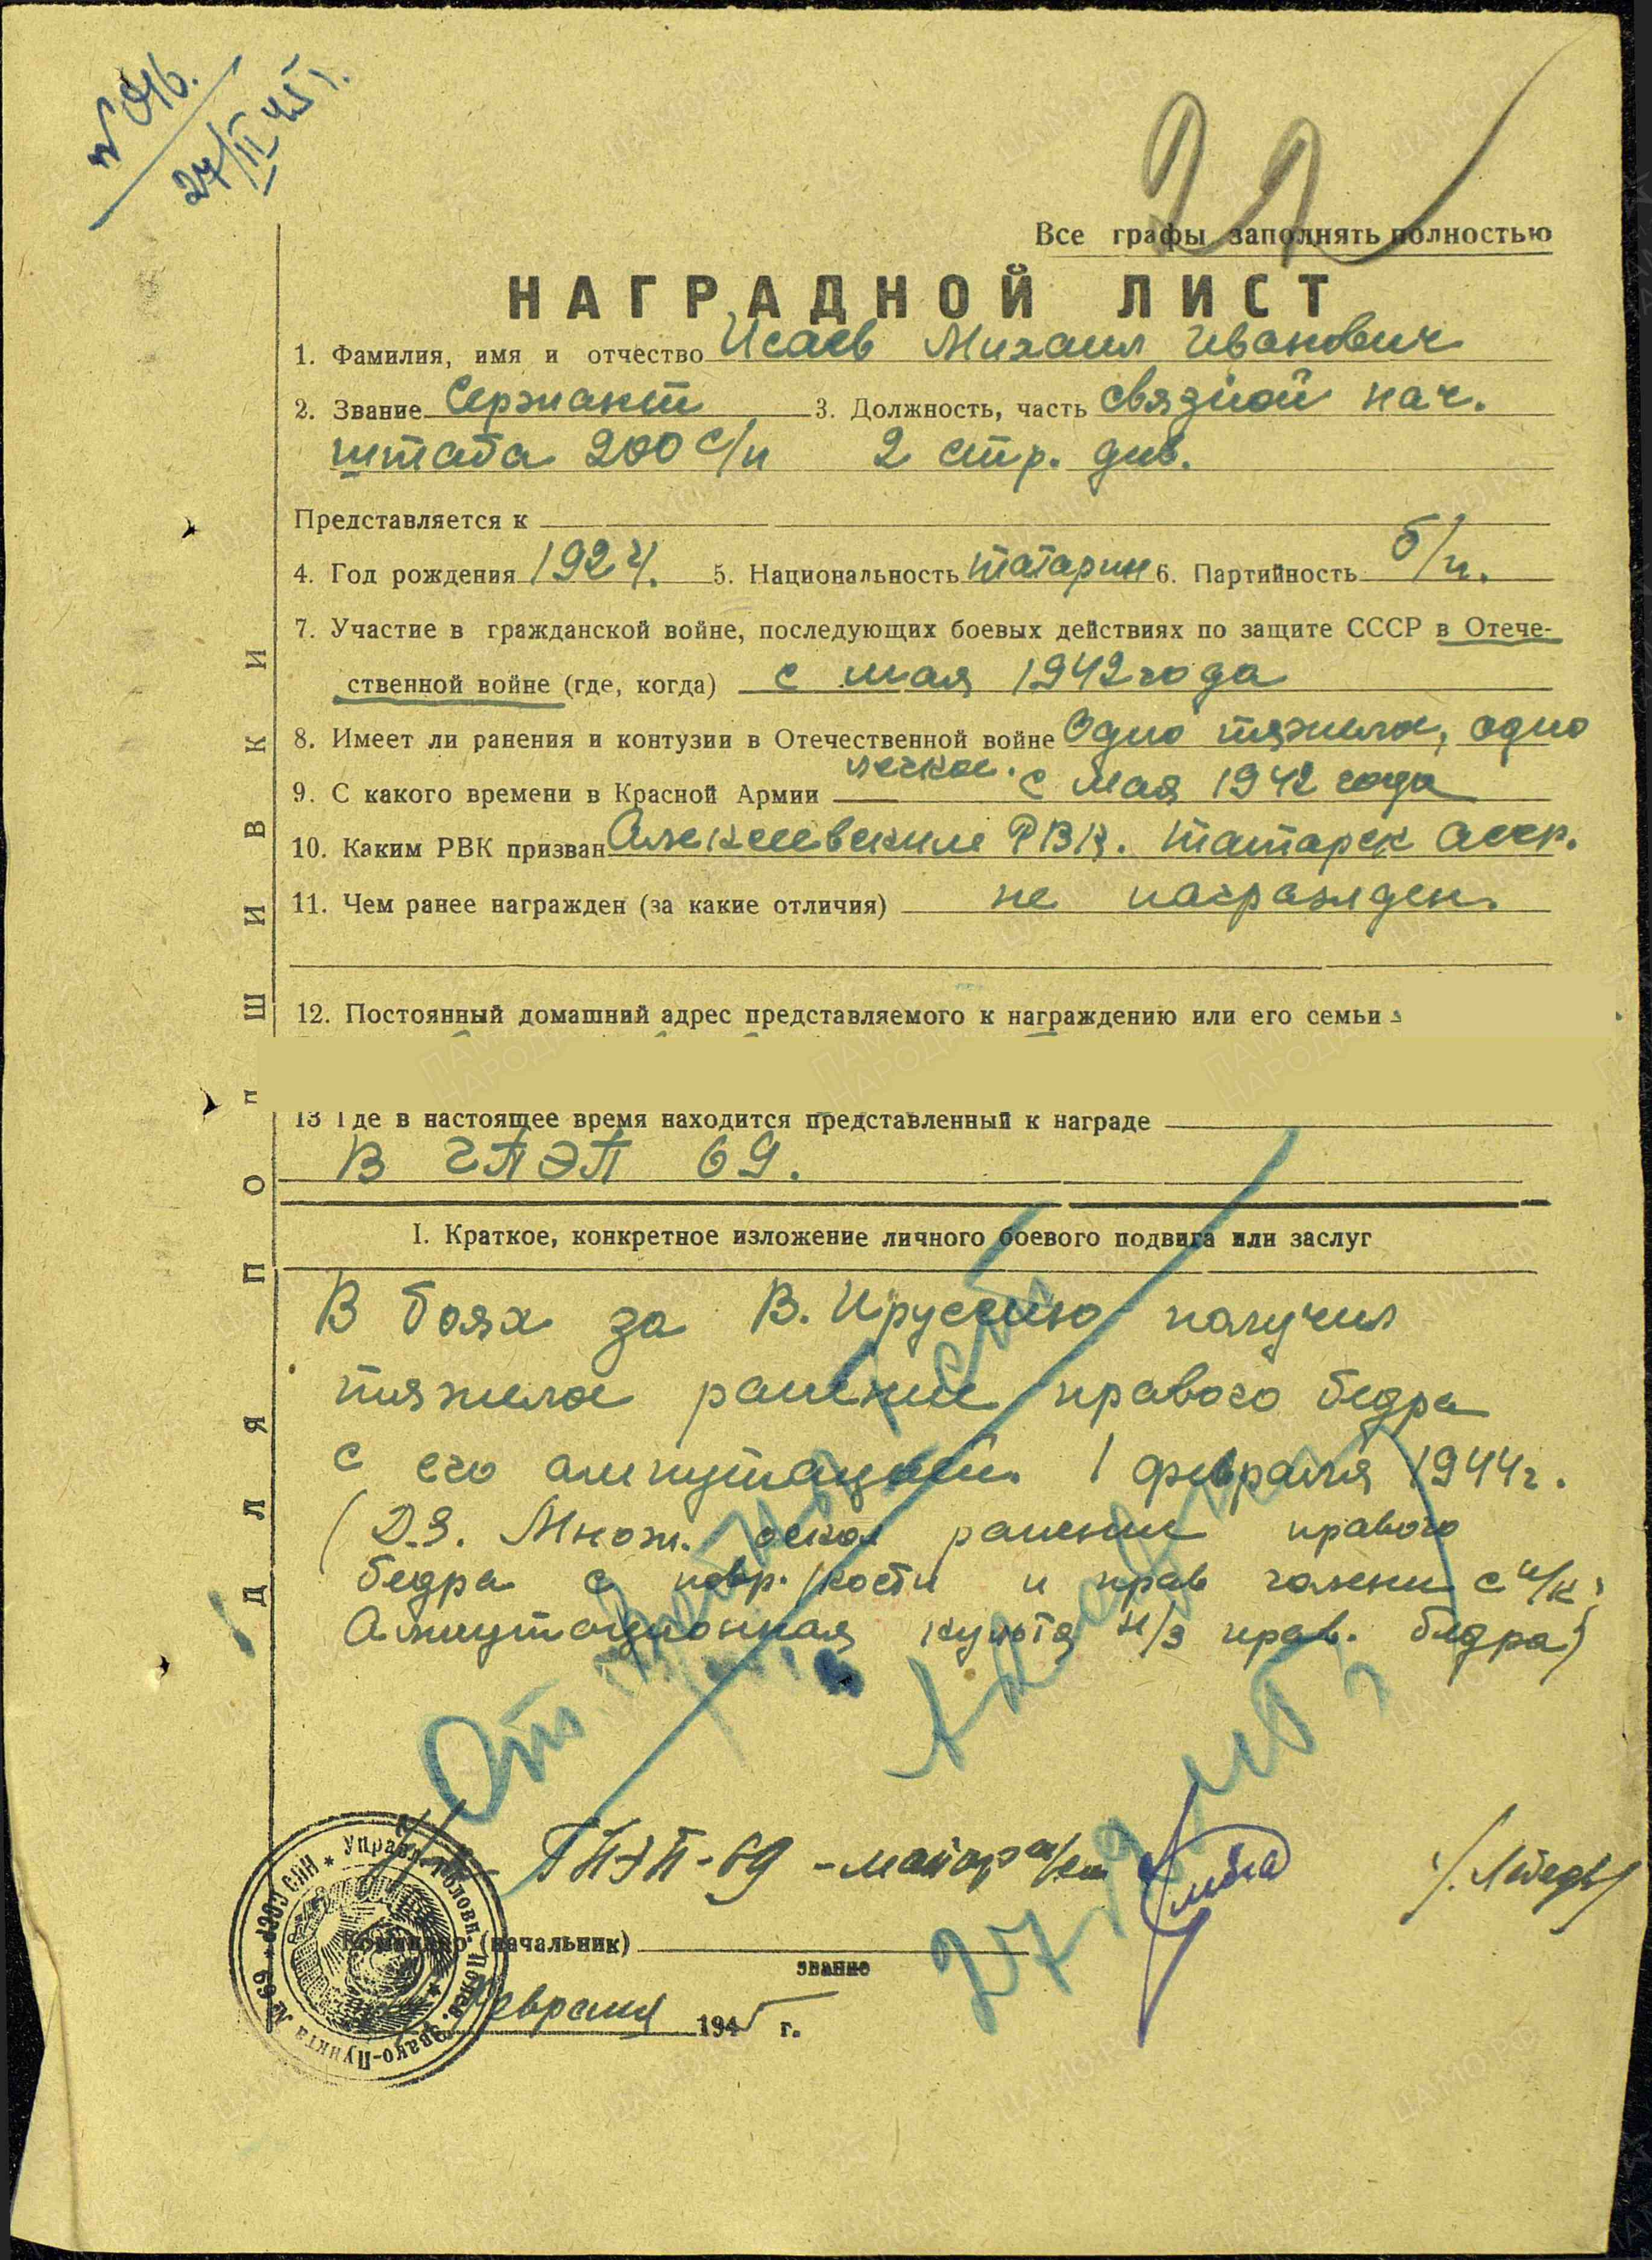 № 046.
27/II 45 г.
22
Все графы заполнять полностью
НАГРАДНОЙ ЛИСТ
1. Фамилия, имя и отчество Исаев Михаил Иванович
2. Звание Сержант 3. Должность, часть связной нач.
штаба 200 с/п 2 стр. див.
Представляется к
4. Год рождения 1924. 5. Национальность татарин 6. Партийность б/п.
7. Участие в гражданской войне, последующих боевых действиях по защите СССР в Отече-
ственной войне (где, когда) с мая 1942 года
8. Имеет ли ранения и контузии в Отечественной войне Одно тяжелое, одно
легкое.
9. С какого времени в Красной Армии с мая 1942 года
10. Каким РВК призван Алексеевским РВК. Татарск АССР.
11. Чем ранее награжден (за какие отличия) не награжден.
12. Постоянный домашний адрес представляемого к награждению или его семьи
13 Где в настоящее время находится представленный к награде
В ГПЭП 69.
I. Краткое, конкретное изложение личного боевого подвига или заслуг
В боях за В. Пруссию получил
тяжелое ранение правого бедра
с его ампутацией. 1 февраля 1944 г.
(Д.З. Множ. оскол ранение правого
бедра с повр. кости и прав голени с п/к;
Ампутационная культя н/з прав. бедра)
От
Красн
27.
ГПЭП-69 - майор м/сл
Командир (начальник)
звание
февраля 1945 г.
Управл. Головн. Полев. Эвако-Пункта № 69 * НКО СССР *
ДЛЯ ПОДШИВКИ